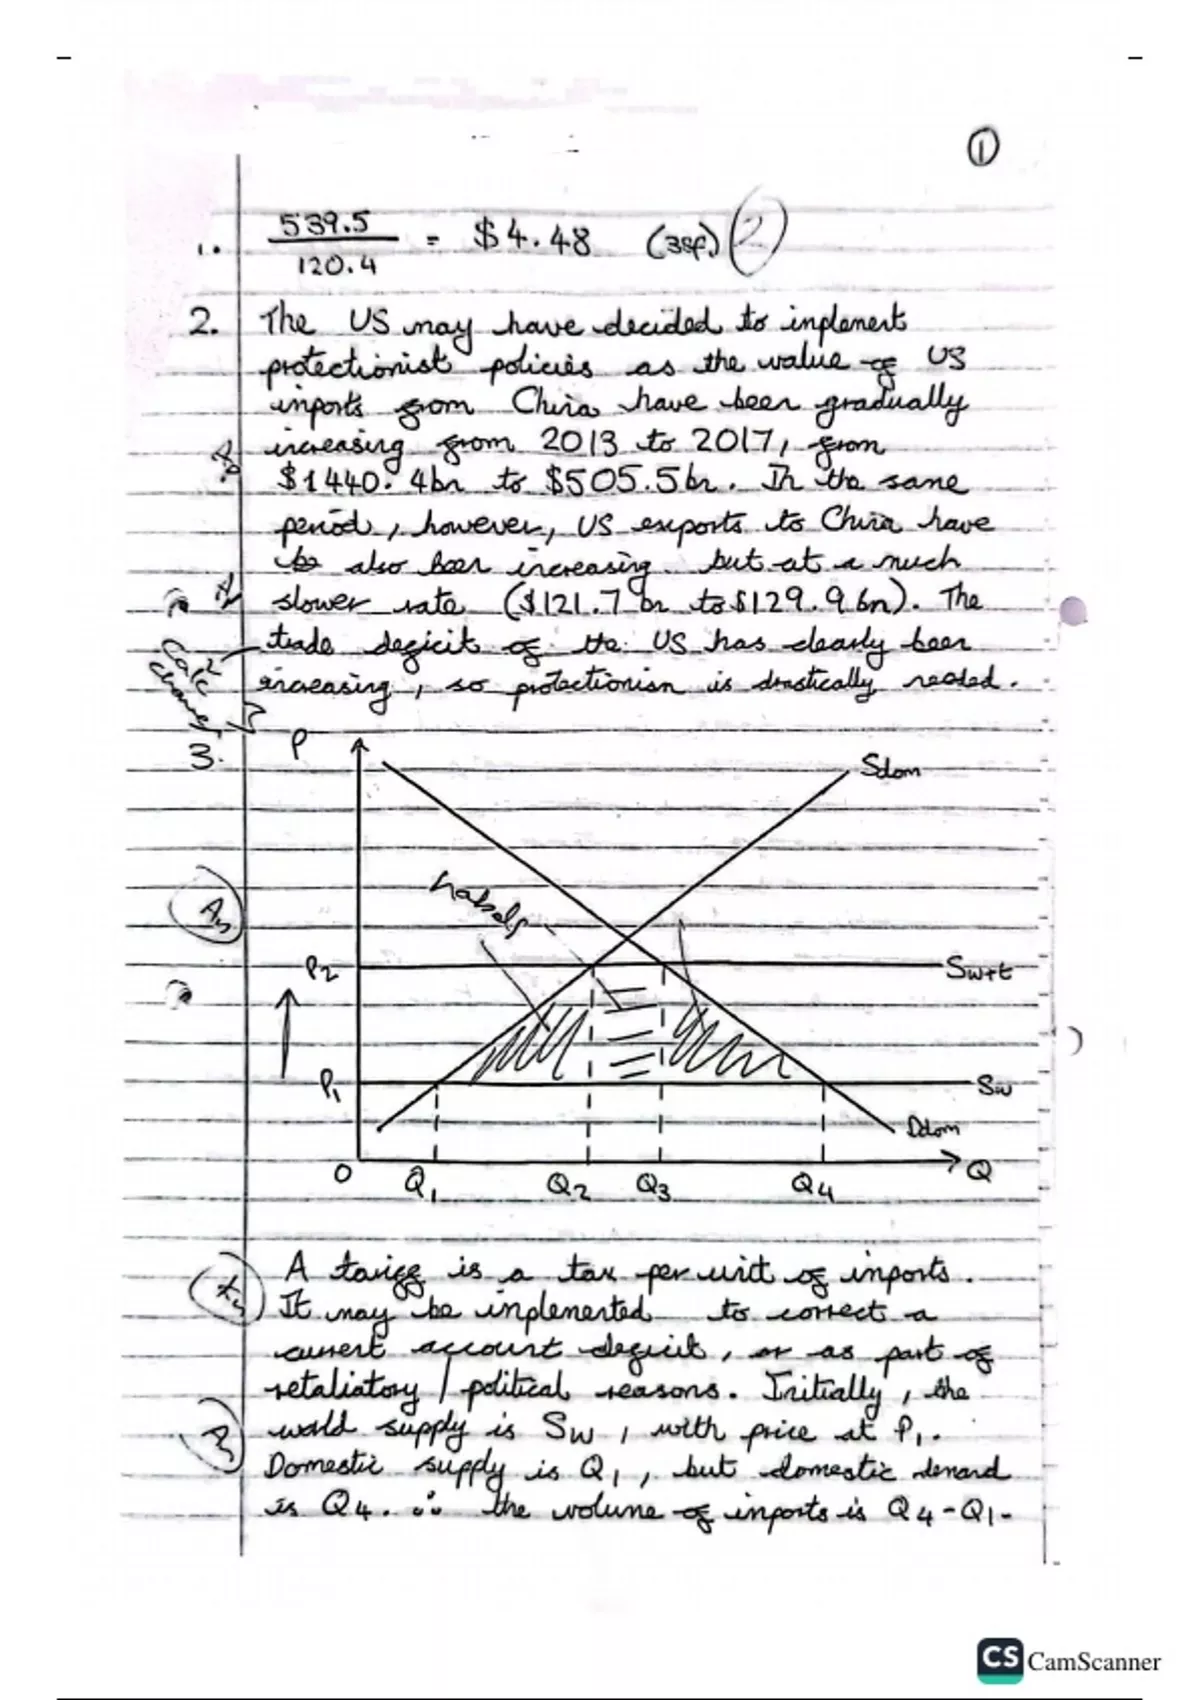 ①
1. 539.5 / 120.4 = $4.48 (3sf.) 2
2. The US may have decided to inplement
protectionist policies as the value of US
inports from China have been gradually
increasing from 2013 to 2017, from
$1440.4bn to $505.5bn. In the same
period, however, US exports to China have
be also been increasing but at a much
slower rate ($121.7bn to $129.9bn). The
trade deficit of the US has clearly been
increasing, so protectionism is drastically needed.
Calc
change
3.
P
Sdom
Labels
P2
Sw+t
P1
Sw
Ddom
O
Q1
Q2
Q3
Q4
Q
A tariff is a tax per unit of inports.
It may be inplemented to correct a
current account deficit, or as part of
retaliatory / political reasons. Initially, the
world supply is Sw, with price at P1.
Domestic supply is Q1, but domestic demand
is Q4. ∴ the volume of inports is Q4-Q1.
CS CamScanner